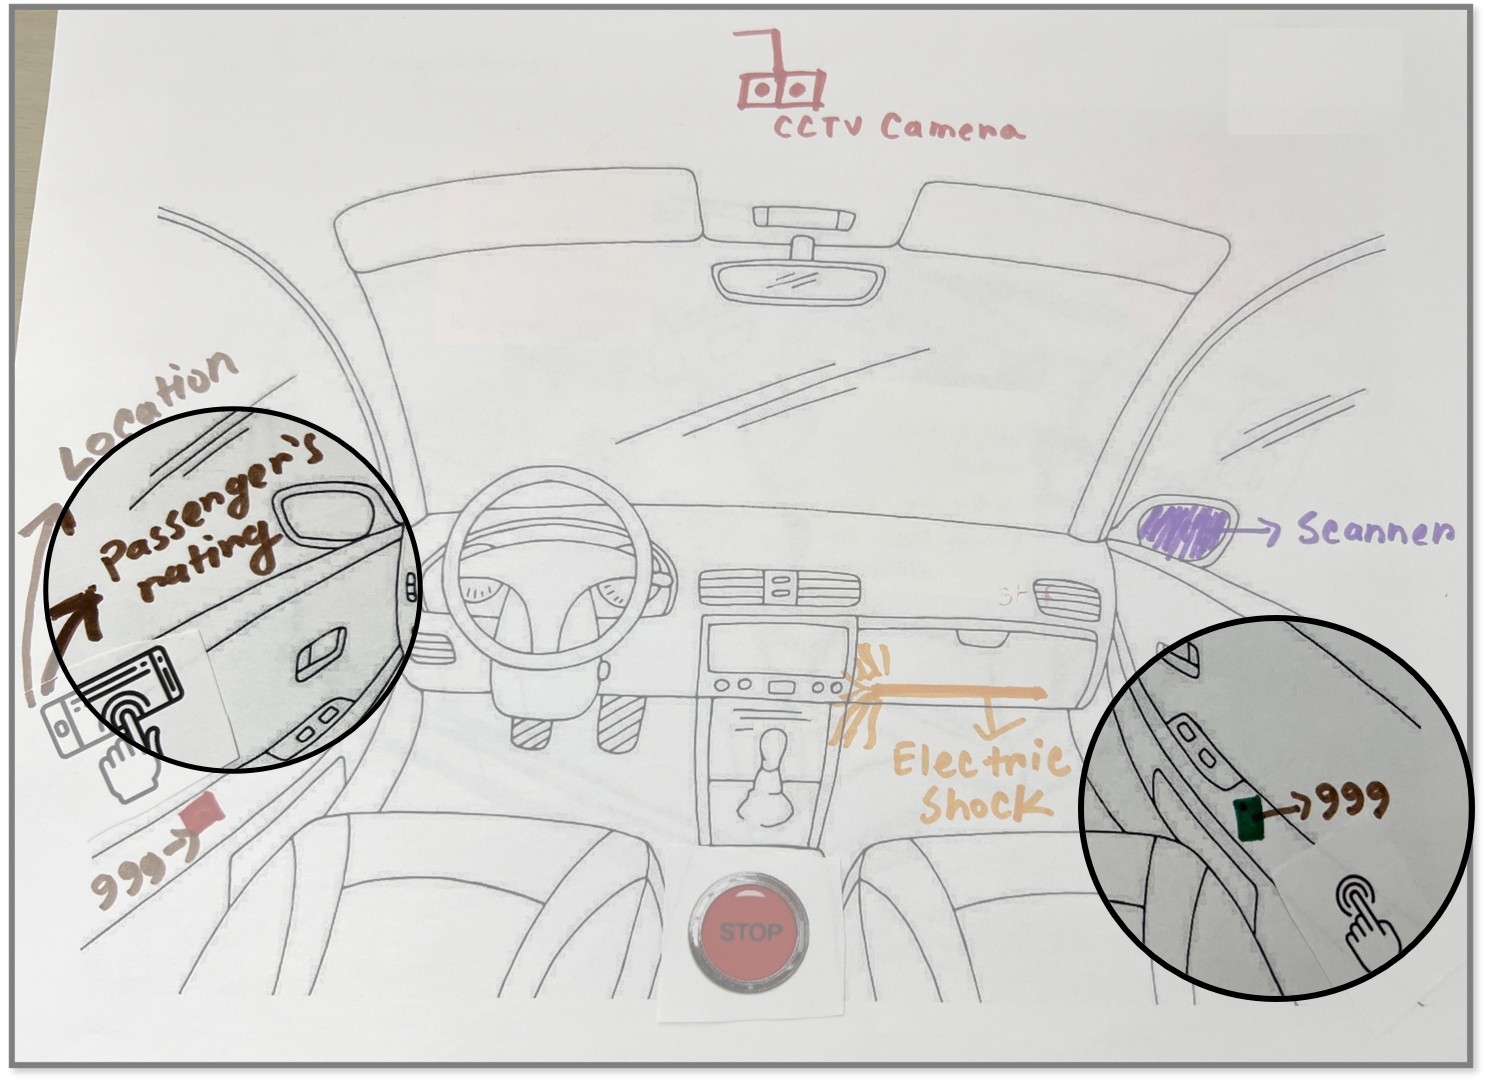 CCTV Camera
Location
Passenger's
rating
Scanner
Electric
Shock
999
999
STOP